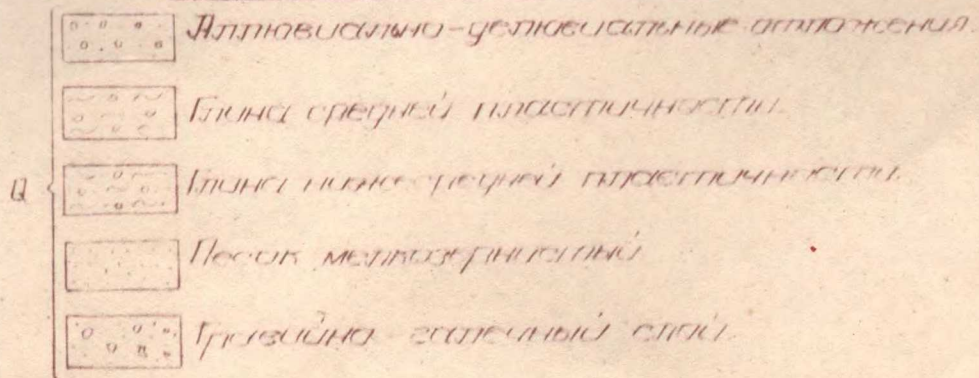 Аллювиально-делювиальные отложения.
Глина средней пластичности.
Q
Глина ниже средней пластичности.
Песок мелкозернистый
Гравийно галечный слой.